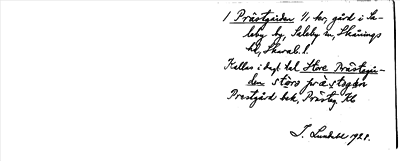 1 Prästgården 1/1 kr, gård i Sa-
leby by, Saleby sn, Skånings
hd, Skarab. l.
Kallas i dagl. tal Store Prästgår-
den stora
Prestgård bek, Prästg Kb
J. Lundahl 1928.